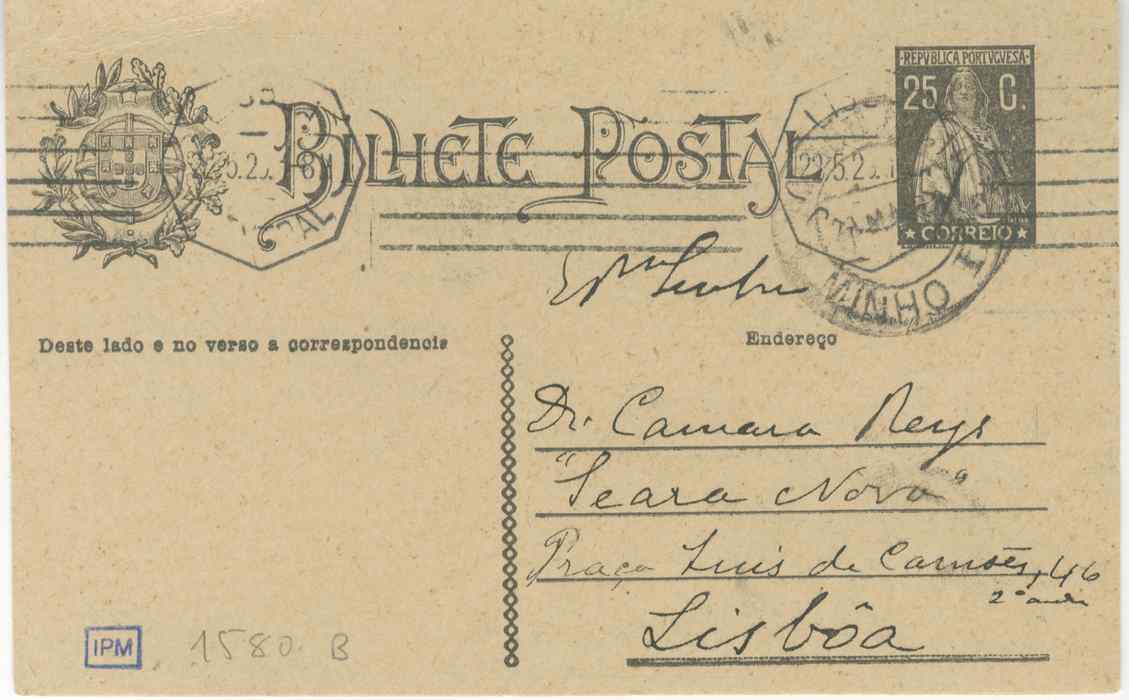 REPVBLICA PORTVGVESA
25 C.
BILHETE POSTAL
22.5.2
CORREIO
MINHO
Deste lado e no verso a correspondencia
Endereço
Dr. Camara Reys
"Seara Nova"
Praça Luis de Camões, 46
2º andar
Lisbôa
IPM
1580 B